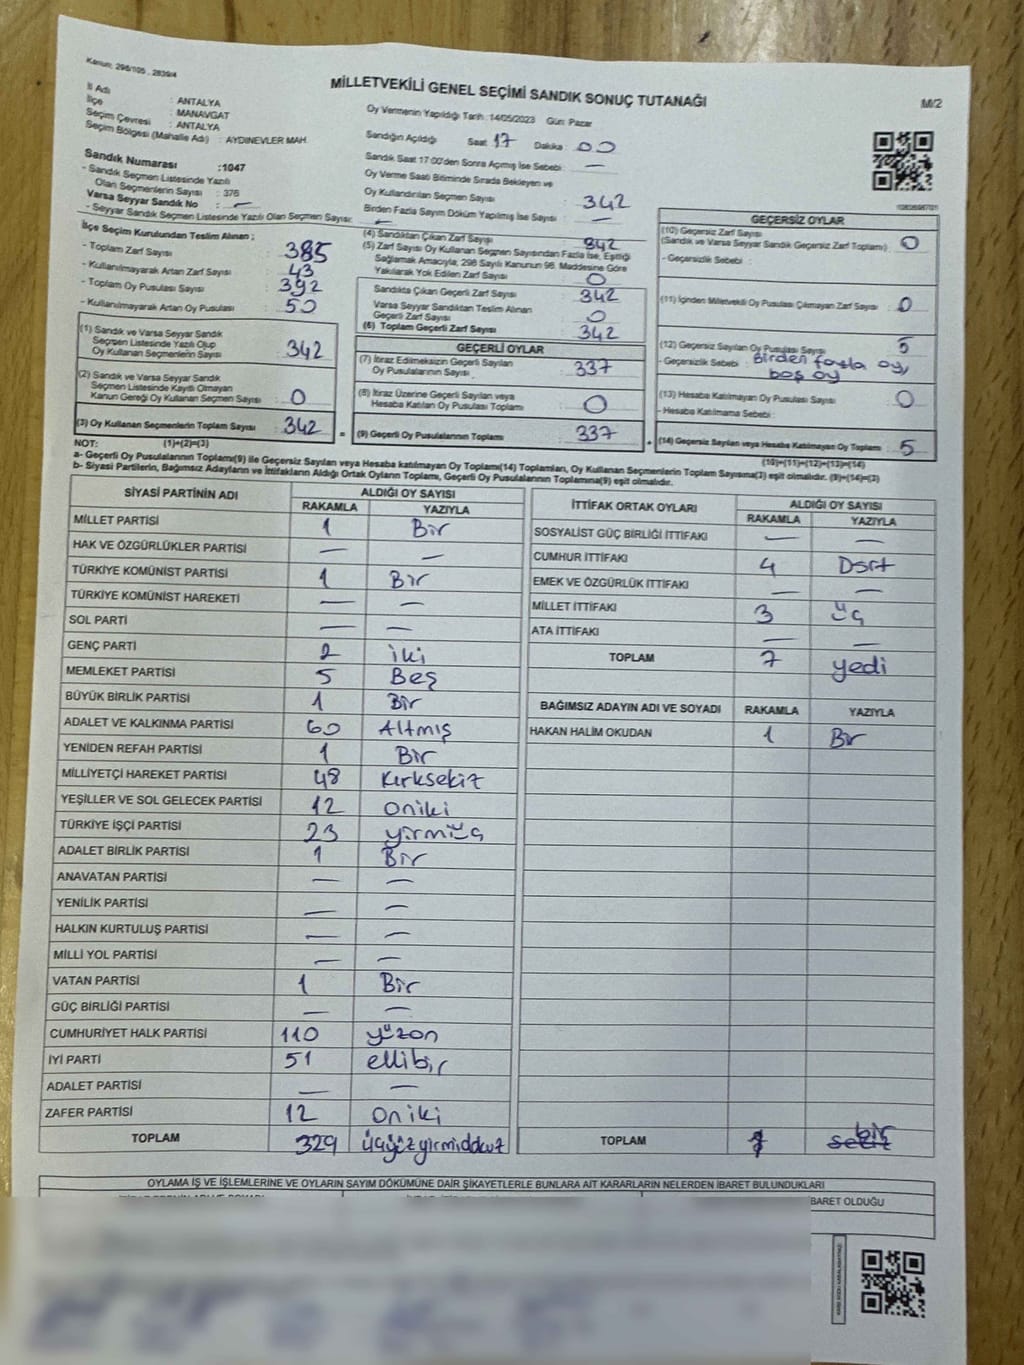 Kanun: 298/105 , 2839/4
MİLLETVEKİLİ GENEL SEÇİMİ SANDIK SONUÇ TUTANAĞI
M/2
İl Adı : ANTALYA
İlçe : MANAVGAT
Seçim Çevresi : ANTALYA
Seçim Bölgesi (Mahalle Adı) : AYDINEVLER MAH.
Sandık Numarası :1047
- Sandık Seçmen Listesinde Yazılı
Olan Seçmenlerin Sayısı : 376
Varsa Seyyar Sandık No : —
- Seyyar Sandık Seçmen Listesinde Yazılı Olan Seçmen Sayısı: —
Oy Vermenin Yapıldığı Tarih : 14/05/2023 Gün: Pazar
Sandığın Açıldığı Saat 17 Dakika : 00
Sandık Saat 17:00'den Sonra Açmış İse Sebebi : —
Oy Verme Saati Bitiminde Sırada Bekleyen ve
Oy Kullandırılan Seçmen Sayısı : 342
Birden Fazla Sayım Döküm Yapılmış İse Sayısı : —
İlçe Seçim Kurulundan Teslim Alınan :
- Toplam Zarf Sayısı : 385
- Kullanılmayarak Artan Zarf Sayısı : 43
- Toplam Oy Pusulası Sayısı : 392
- Kullanılmayarak Artan Oy Pusulası : 50
(1) Sandık ve Varsa Seyyar Sandık
Seçmen Listesinde Yazılı Olup
Oy Kullanan Seçmenlerin Sayısı : 342
(2) Sandık ve Varsa Seyyar Sandık
Seçmen Listesinde Kayıtlı Olmayan
Kanun Gereği Oy Kullanan Seçmen Sayısı : 0
(3) Oy Kullanan Seçmenlerin Toplam Sayısı : 342
(1)+(2)=(3)
(4) Sandıktan Çıkan Zarf Sayısı 342
(5) Zarf Sayısı Oy Kullanan Seçmen Sayısından Fazla İse, Eşitliği
Sağlamak Amacıyla, 298 Sayılı Kanunun 98. Maddesine Göre
Yakılarak Yok Edilen Zarf Sayısı : 0
Sandıkta Çıkan Geçerli Zarf Sayısı : 342
Varsa Seyyar Sandıktan Teslim Alınan
Geçerli Zarf Sayısı : 0
(6) Toplam Geçerli Zarf Sayısı : 342
GEÇERLİ OYLAR
(7) İtiraz Edilmeksizin Geçerli Sayılan
Oy Pusulalarının Sayısı : 337
(8) İtiraz Üzerine Geçerli Sayılan veya
Hesaba Katılan Oy Pusulası Toplamı : 0
= (9) Geçerli Oy Pusulalarının Toplamı : 337
GEÇERSİZ OYLAR
(10) Geçersiz Zarf Sayısı
(Sandık ve Varsa Seyyar Sandık Geçersiz Zarf Toplamı) : 0
- Geçersizlik Sebebi :
(11) İçinden Milletvekili Oy Pusulası Çıkmayan Zarf Sayısı : 0
(12) Geçersiz Sayılan Oy Pusulası Sayısı : 5
- Geçersizlik Sebebi : Birden fazla oy,
boş oy
(13) Hesaba Katılmayan Oy Pusulası Sayısı : 0
- Hesaba Katılmama Sebebi :
+ (14) Geçersiz Sayılan veya Hesaba Katılmayan Oy Toplamı : 5
(10)+(11)+(12)+(13)=(14)
NOT:
a- Geçerli Oy Pusulalarının Toplamı(9) ile Geçersiz Sayılan veya Hesaba katılmayan Oy Toplamı(14) Toplamları, Oy Kullanan Seçmenlerin Toplam Sayısına(3) eşit olmalıdır. (9)+(14)=(3)
b- Siyasi Partilerin, Bağımsız Adayların ve İttifakların Aldığı Ortak Oyların Toplamı, Geçerli Oy Pusulalarının Toplamına(9) eşit olmalıdır.
SİYASİ PARTİNİN ADI ALDIĞI OY SAYISI
RAKAMLA YAZIYLA
MİLLET PARTİSİ 1 Bir
HAK VE ÖZGÜRLÜKLER PARTİSİ — —
TÜRKİYE KOMÜNİST PARTİSİ 1 Bir
TÜRKİYE KOMÜNİST HAREKETİ — —
SOL PARTİ — —
GENÇ PARTİ 2 iki
MEMLEKET PARTİSİ 5 Beş
BÜYÜK BİRLİK PARTİSİ 1 Bir
ADALET VE KALKINMA PARTİSİ 60 Altmış
YENİDEN REFAH PARTİSİ 1 Bir
MİLLİYETÇİ HAREKET PARTİSİ 48 Kırksekiz
YEŞİLLER VE SOL GELECEK PARTİSİ 12 Oniki
TÜRKİYE İŞÇİ PARTİSİ 23 yirmiüç
ADALET BİRLİK PARTİSİ 1 Bir
ANAVATAN PARTİSİ — —
YENİLİK PARTİSİ — —
HALKIN KURTULUŞ PARTİSİ — —
MİLLİ YOL PARTİSİ — —
VATAN PARTİSİ 1 Bir
GÜÇ BİRLİĞİ PARTİSİ — —
CUMHURİYET HALK PARTİSİ 110 yüzon
İYİ PARTİ 51 ellibir
ADALET PARTİSİ — —
ZAFER PARTİSİ 12 Oniki
TOPLAM 329 üçyüzyirmidokuz
İTTİFAK ORTAK OYLARI ALDIĞI OY SAYISI
RAKAMLA YAZIYLA
SOSYALİST GÜÇ BİRLİĞİ İTTİFAKI — —
CUMHUR İTTİFAKI 4 Dört
EMEK VE ÖZGÜRLÜK İTTİFAKI — —
MİLLET İTTİFAKI 3 üç
ATA İTTİFAKI — —
TOPLAM 7 yedi
BAĞIMSIZ ADAYIN ADI VE SOYADI RAKAMLA YAZIYLA
HAKAN HALİM OKUDAN 1 Bir
TOPLAM 1 bir
sekiz
OYLAMA İŞ VE İŞLEMLERİNE VE OYLARIN SAYIM DÖKÜMÜNE DAİR ŞİKAYETLERLE BUNLARA AİT KARARLARIN NELERDEN İBARET BULUNDUKLARI
İBARET OLDUĞU